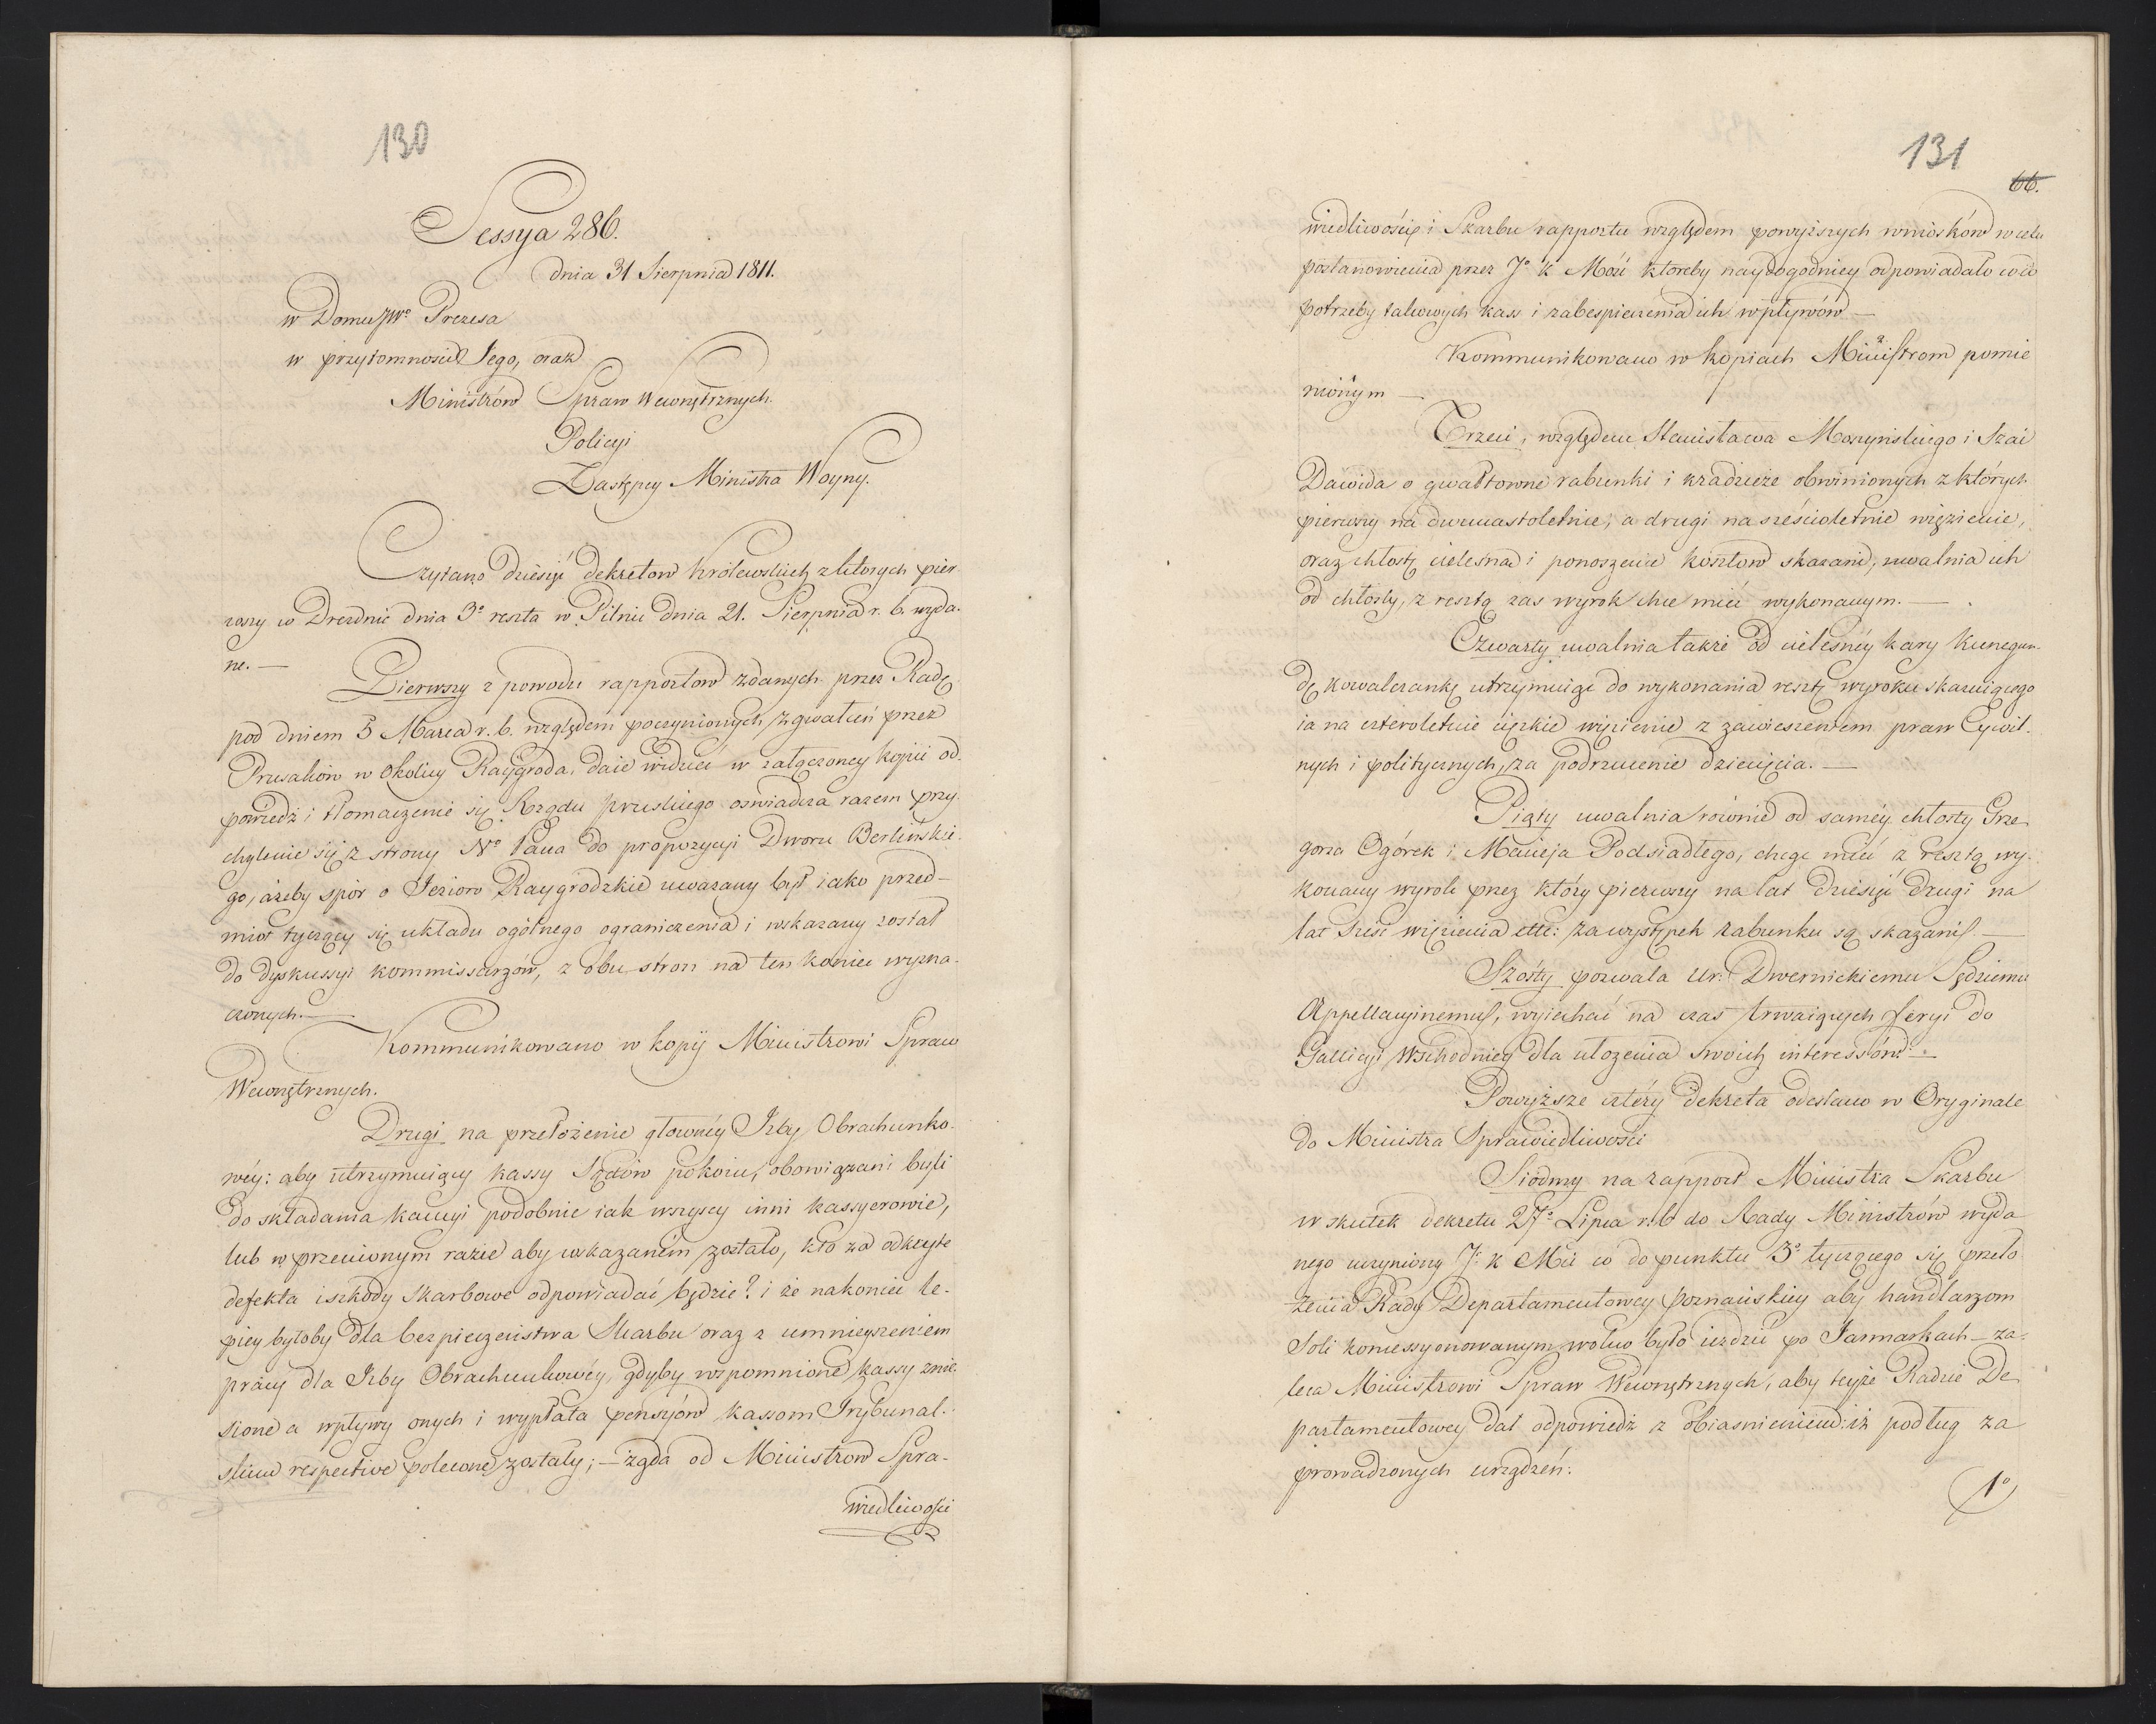 130
Sessya 286.
dnia 31 Sierpnia 1811.
w Domu JWo Prezesa
w przytomności Jego, oraz
Ministrów Spraw Wewnętrznych.
Policyi
Zastępcy Ministra Woyny.
Czytano dziesięć dekretow Królewskich z ktorych pier-
wszy w Dreznie dnia 3o reszta w Pilnic dnia 21. Sierpnia r. b. wyda-
ne. —
Pierwszy z powodu rapportow zdanych przez Radę
pod dniem 5 Marca r. b. względem poczynionych zgwałceń przez
Prusaków w okolicy Raygroda, daie widzieć w załączoney kopii od-
powiedź i tłomaczenie się Rządu pruskiego oswiadcza razem przy-
chylenie się z strony No Pana do propozycyi Dworu Berlińskie-
go, ażeby spór o Jezioro Raygrodzkie uważany był iako przed-
miot tyczący się układu ogólnego ograniczenia i wskazany został
do dyskussyi kommissarzów, z obu stron na ten koniec wyzna-
czonych. —
Kommunikowano w kopij Ministrowi Spraw
Wewnętrznych.
Drugi na przełożenie głownéy Izby Obrachunko-
wéy: aby utrzymuiący kassy Sądów pokoiu, obowiązani byli
do składania kaucyi podobnie iak wszyscy inni kassyerowie,
lub w przeciwnym razie aby wskazaném zostało, kto za odkryte
defekta i szkody skarbowe odpowiadać będzie? i że nakoniec le-
piey byłoby dla bezpieczeństwa Skarbu oraz z umnieyszeniem
pracy dla Izby Obrachunkowéy, gdyby wspomnione kassy znie-
sione a wpływy onych i wypłata pensyów kassom Trybunal-
skim respective polecone zostały; — żąda od Ministrow Spra-
wiedliwości
131
66.
wiedliwości i Skarbu rapportu względem powyższych wniosków w celu
postanowienia przez Jo K Mość ktoreby naydogodniey odpowiadało co do
potrzeby takowych kass i zabespieczenia ich wpływów —
Kommunikowano w kopiach Ministrom pomie
nionym —
Trzeci, względem Stanisława Moszyńskiego i Szai
Dawida o gwałtowne rabunki i kradzieże obwinionych z których
pierwszy na dwunastoletnie, a drugi na sześcioletnie więzienie,
oraz chłostę cielesną i ponoszenie kosztow skazani, uwalnia ich
od chłosty, z resztą zas wyrok chce mieć wykonanym. —
Czwarty uwalnia także od cielesnéy kary Kunegun-
dę Kowalczankę utrzymuiąc do wykonania resztę wyroku skazuiącego
ią na czteroletnie ciężkie więzienie z zawieszeniem praw Cywil-
nych i politycznych, za podrzucenie dziecięcia. —
Piąty uwalnia równie od saméy chłosty Grze-
gorza Ogórek i Macieja Podsiadłego, chcąc mieć z resztą wy-
konany wyrok przez który pierwszy na lat dziesięć drugi na
lat sześć więzienia etc: za występek rabunku są skazani. —
Szósty pozwala Ur: Dwernickiemu Sędziemu
Appellacyinemu, wyiechać na czas trwaiących feryi do
Gallicyi Wschodniey dla ułożenia swoich interessów. —
Powyższe cztéry dekreta odesłano w Oryginale
do Ministra Sprawiedliwości
Siódmy na rapport Ministra Skarbu
w skutek dekretu 27o Lipca r. b do Rady Ministrów wyda
nego uczyniony J: K Mci co do punktu 3o tyczącego się przeło
żenia Rady Departamentowey poznańskiey aby handlarzom
soli koncessyonowanym wolno było ieździć po Jarmarkach — za-
leca Ministrowi Spraw Wewnętrznych, aby teyże Radzie De
partamentowey dał odpowiedź z obiasnieniem: iż podług za
prowadzonych urządzeń:
1o